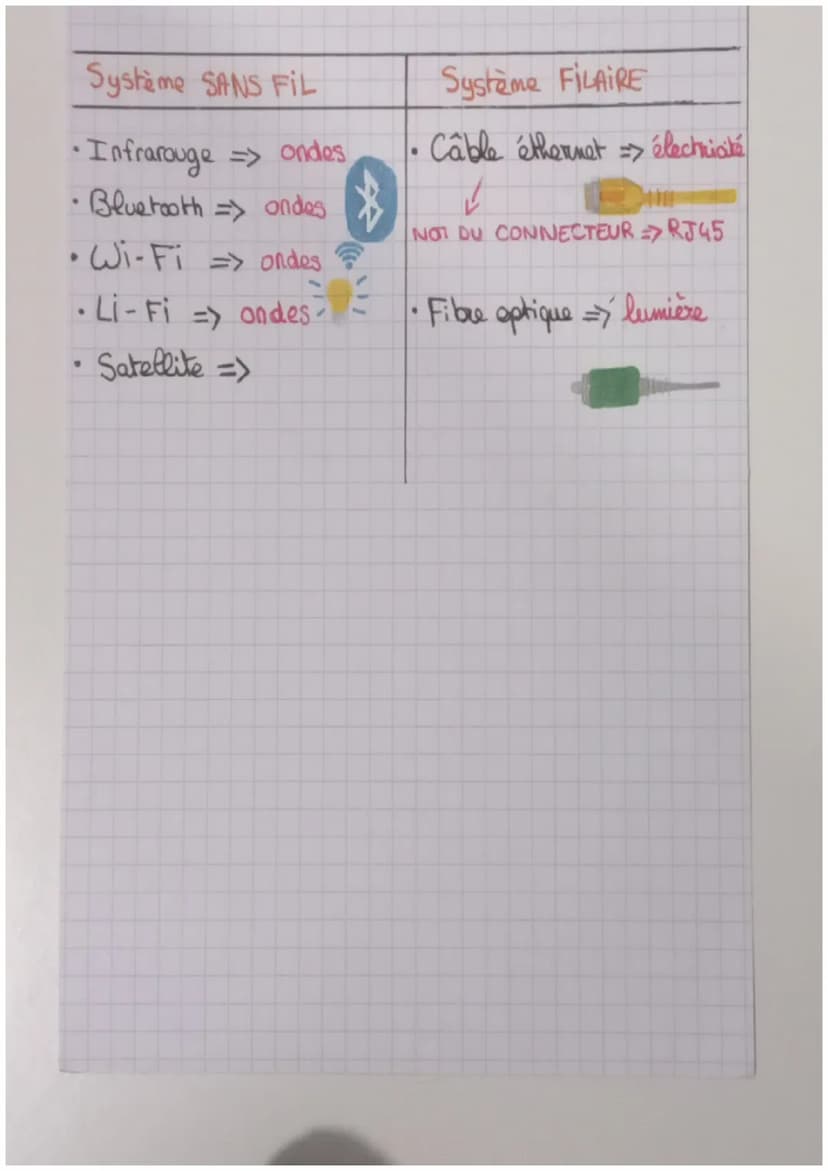 Système SANS FiL
• Infrarouge => ondes
• Bluetooth => ondes
• Wi-Fi => ondes
• Li-Fi => ondes
• Satellite =>
Système FiLAiRE
• Câble éthernet => électricité
NOM DU CONNECTEUR => RJ45
• Fibre optique => lumière